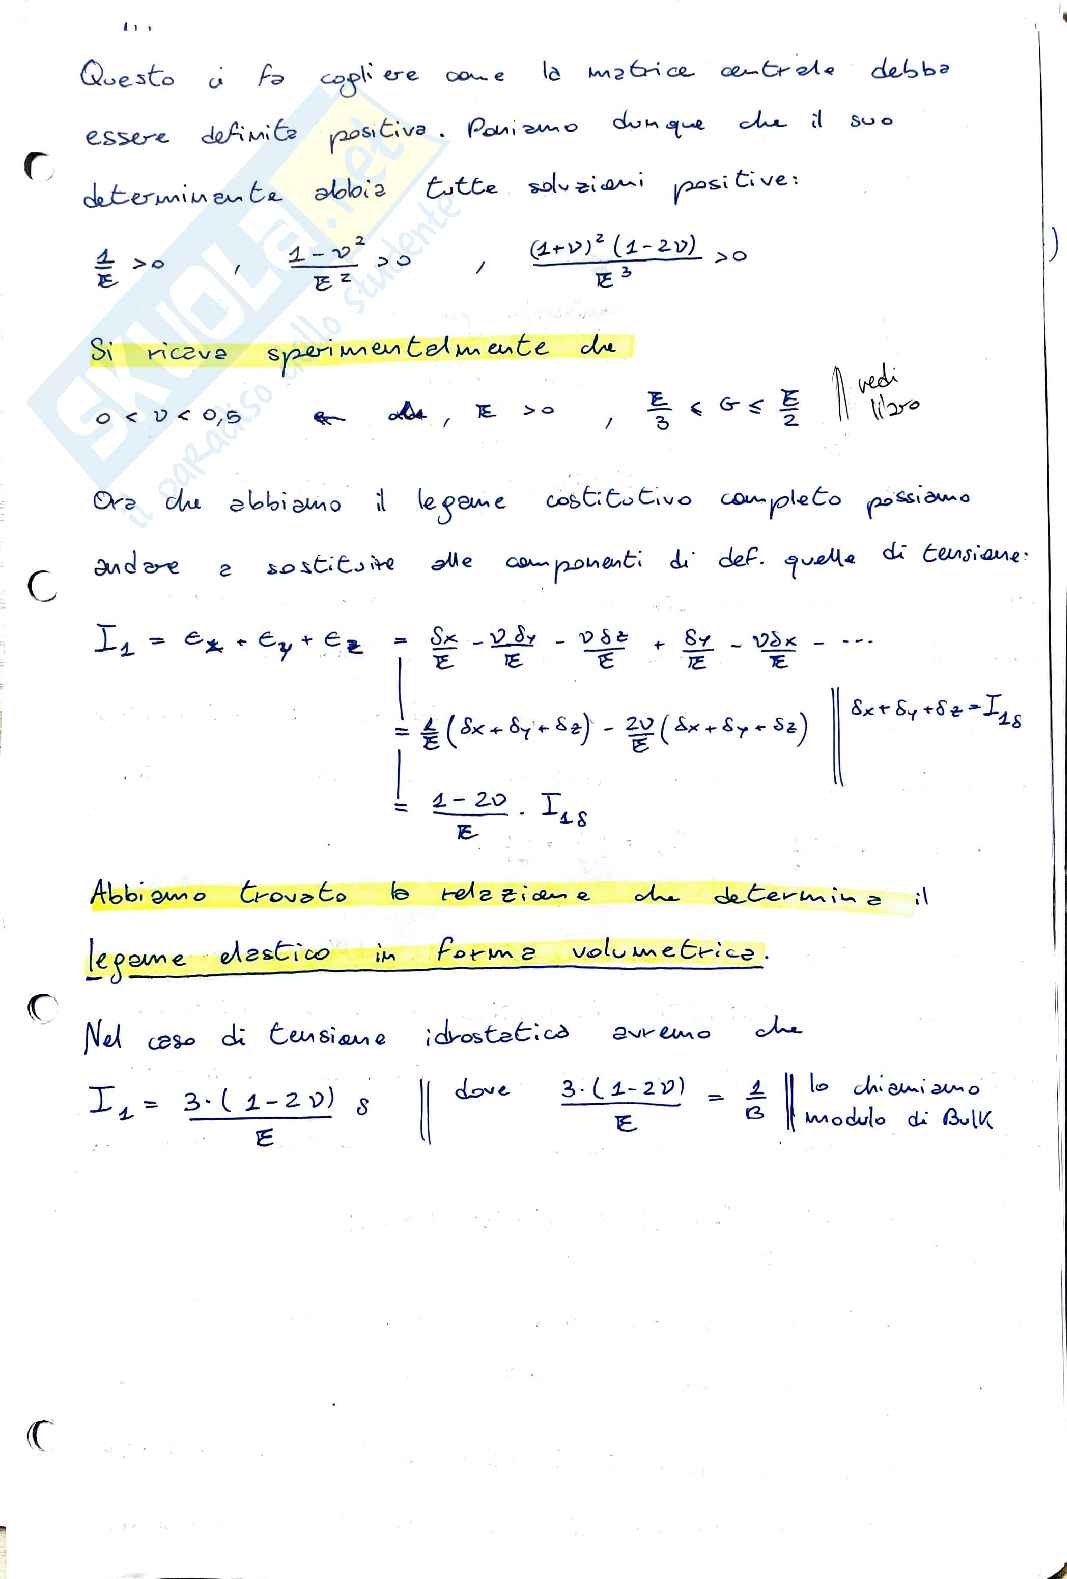 Questo ci fa cogliere come la matrice centrale debba
essere definita positiva. Poniamo dunque che il suo
determinante abbia tutte soluzioni positive:
1/E >0 , 1-ν²/E² >0 , (1+ν)²(1-2ν)/E³ >0
Si ricava sperimentalmente che
0 < ν < 0,5 , E >0 , E/3 < G ≤ E/2 || vedi libro
Ora che abbiamo il legame costitutivo completo possiamo
andare a sostituire alle componenti di def. quelle di tensione:
I₁ = ϵx + ϵy + ϵz = δx/E - νδy/E - νδz/E + δy/E - νδx/E - ...
= 1/E (δx + δy + δz) - 2ν/E (δx + δy + δz) || δx + δy + δz = I₁δ
= 1-2ν/E · I₁δ
Abbiamo trovato la relazione che determina il
legame elastico in forma volumetrica.
Nel caso di tensione idrostatica avremo che
I₁ = 3·(1-2ν)/E δ || dove 3·(1-2ν)/E = 1/B || lo chiamiamo modulo di Bulk
SKUOLA.net
il paradiso dello studente